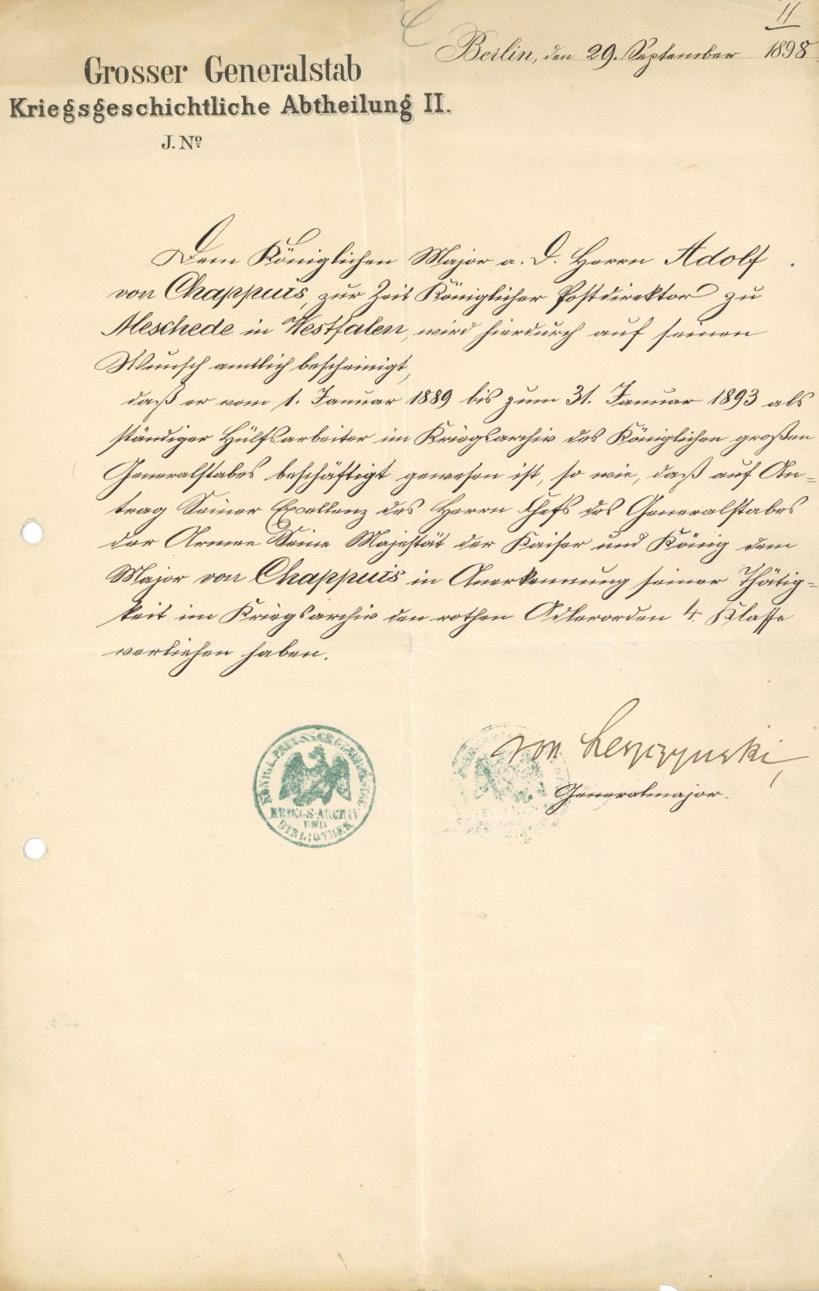 11
Berlin, den 29. September 1898
Grosser Generalstab
Kriegsgeschichtliche Abtheilung II.
J. No
Dem Königlichen Major a. D. Herrn Adolf
von Chappuis, zur Zeit Königlicher Postdirektor zu
Meschede in Westfalen, wird hierdurch auf seinen
Wunsch amtlich bescheinigt,
daß er vom 1. Januar 1889 bis zum 31. Januar 1893 als
ständiger Hülfsarbeiter im Kriegsarchiv des Königlichen großen
Generalstabes beschäftigt gewesen ist, so wie, daß auf An=
trag Seiner Excellenz des Herrn Chefs des Generalstabes
der Armee Seine Majestät der Kaiser und König dem
Major von Chappuis in Anerkennung seiner Thätig=
keit im Kriegsarchiv den rothen Adlerorden 4. Klasse
verliehen haben.
von Leszczynski,
Generalmajor.
KÖNIGL. PREUSSISCHER
KRIEGS-ARCHIV
UND
BIBLIOTHEK